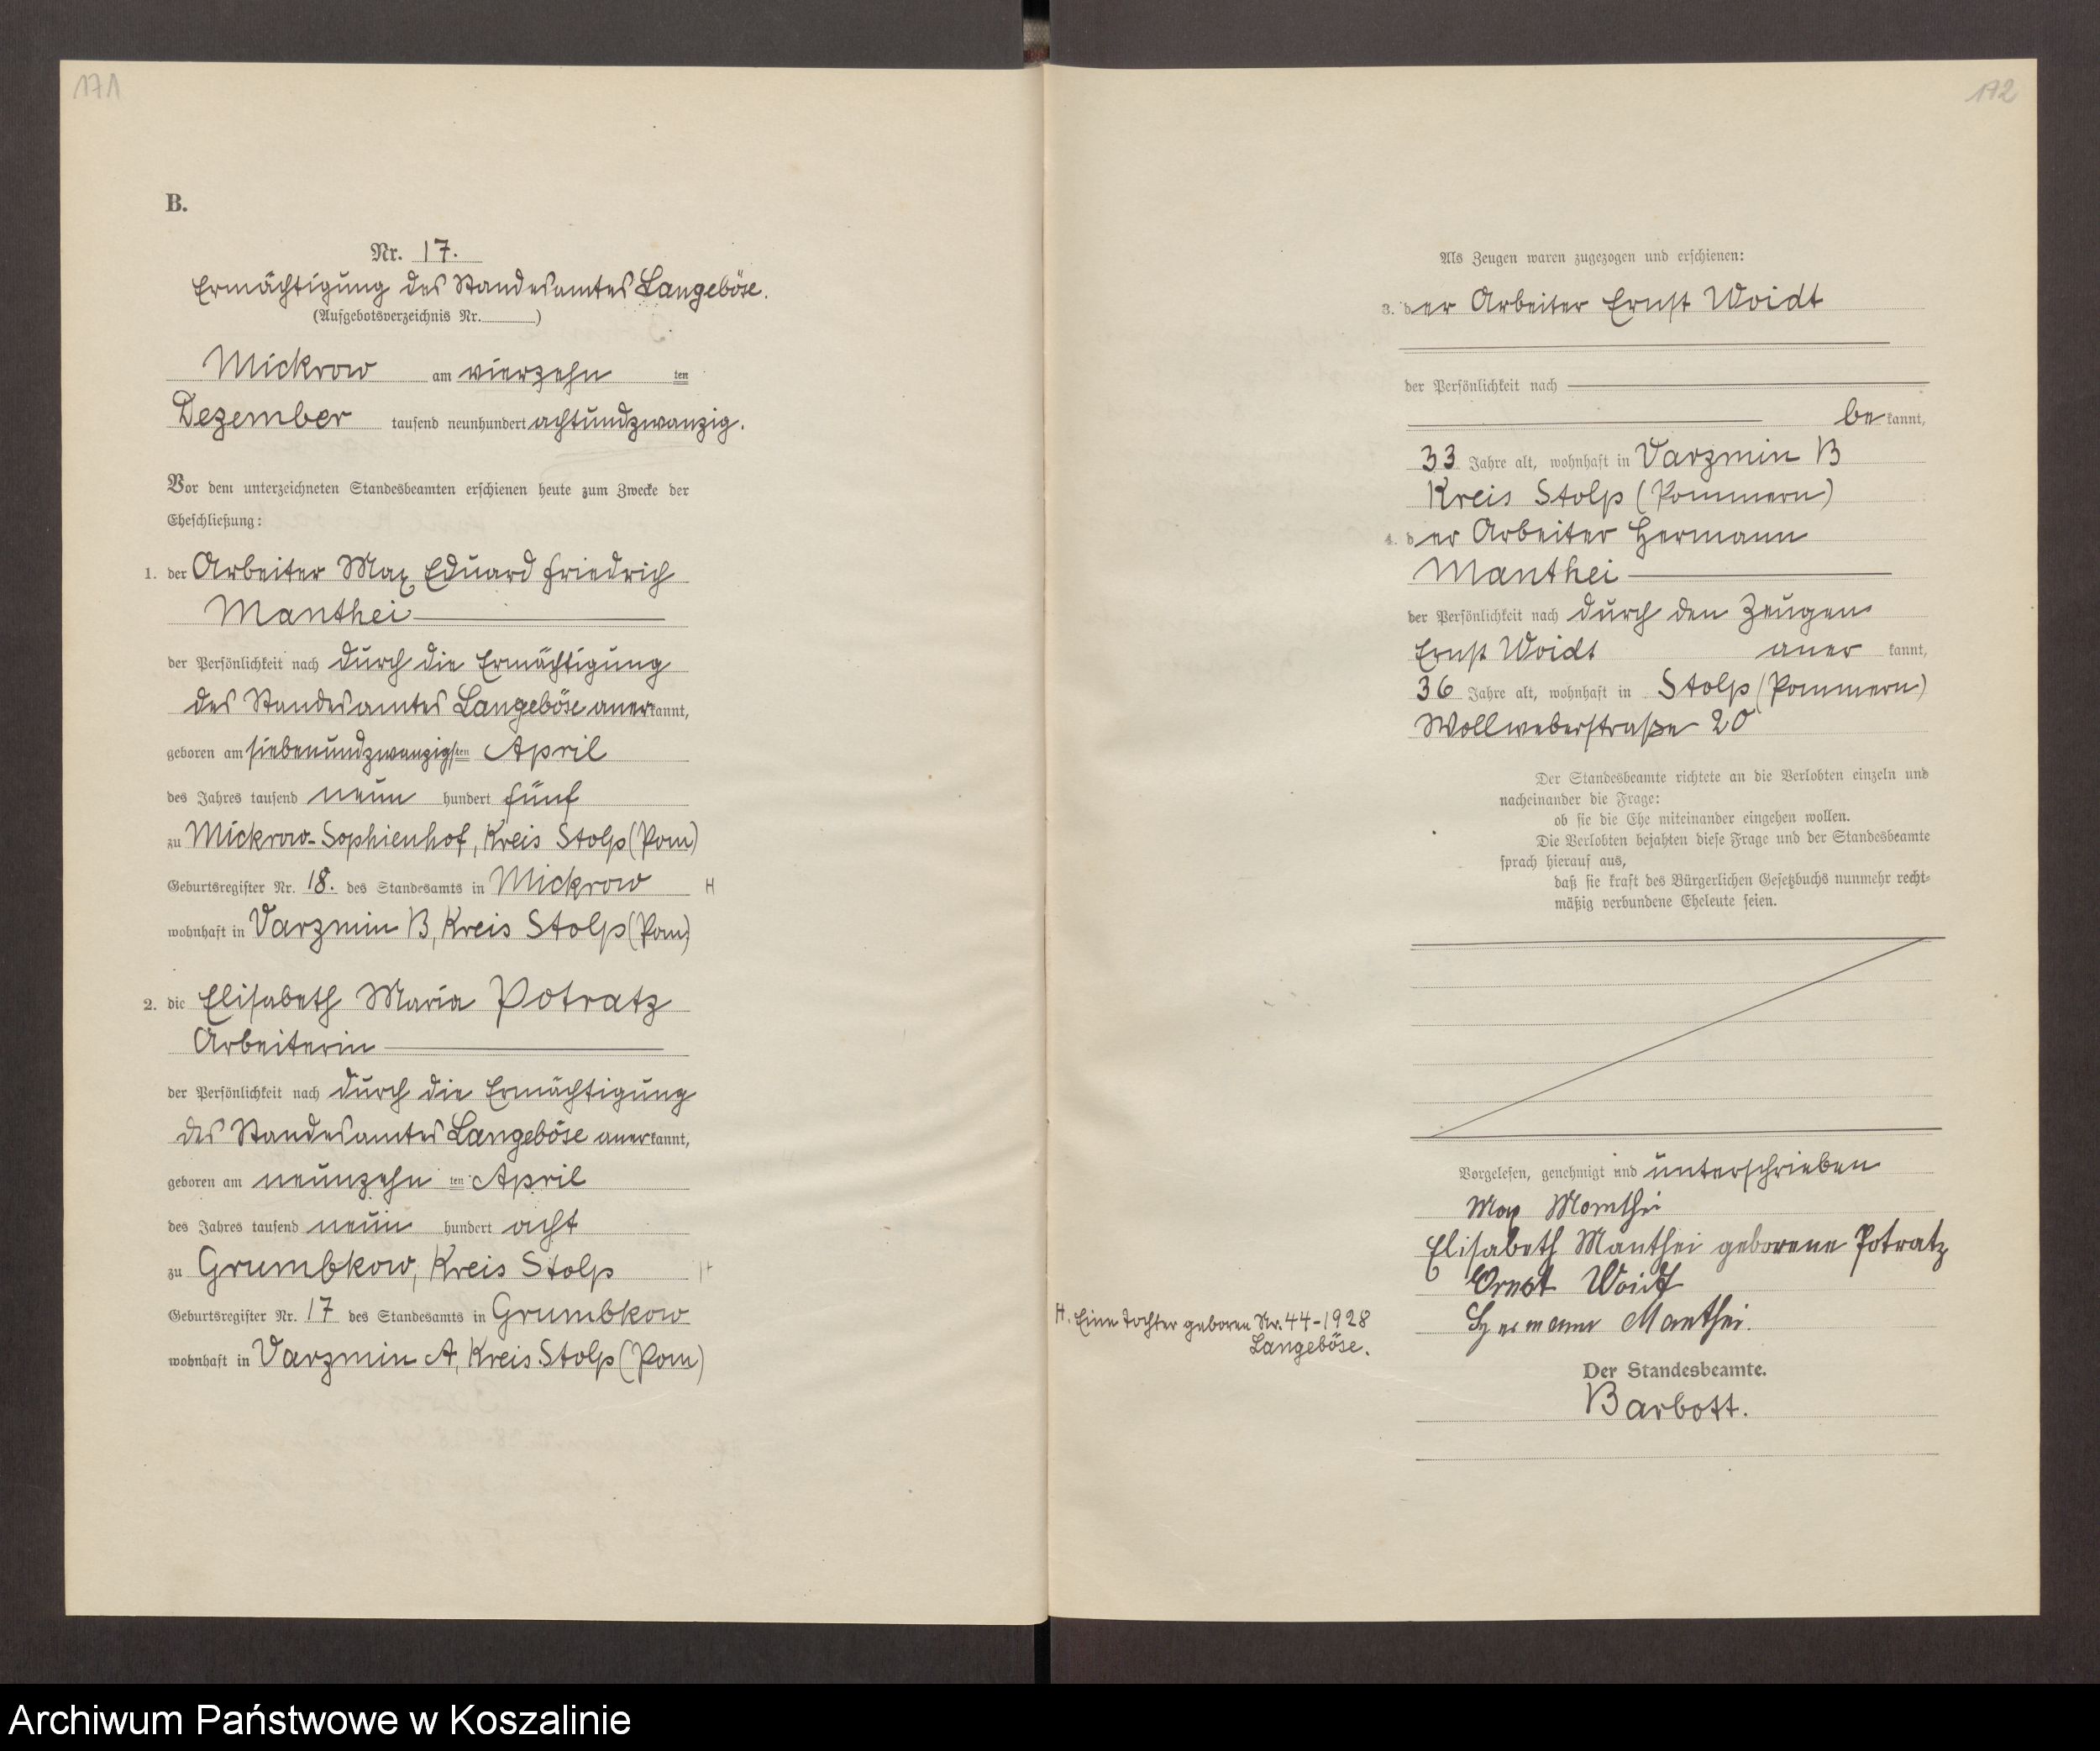 171
B.
Nr. 17.
Ermächtigung des Standesamtes Langeböse.
(Aufgebotsverzeichnis Nr. )
Mickrow am vierzehn ten
Dezember tausend neunhundert achtundzwanzig.
Vor dem unterzeichneten Standesbeamten erschienen heute zum Zwecke der
Eheschließung:
1. der Arbeiter Max Eduard Friedrich
Manthei
der Persönlichkeit nach durch die Ermächtigung
des Standesamtes Langeböse anerkannt,
geboren am siebenundzwanzigsten April
des Jahres tausend neun hundert fünf
zu Mickrow-Sophienhof, Kreis Stolp (Pom)
Geburtsregister Nr. 18. des Standesamts in Mickrow H
wohnhaft in Varzmin B, Kreis Stolp (Pom)
2. die Elisabeth Maria Potratz
Arbeiterin
der Persönlichkeit nach durch die Ermächtigung
des Standesamtes Langeböse anerkannt,
geboren am neunzehn ten April
des Jahres tausend neun hundert acht
zu Grumbkow, Kreis Stolp H
Geburtsregister Nr. 17 des Standesamts in Grumbkow
wohnhaft in Varzmin A, Kreis Stolp (Pom)
172
Als Zeugen waren zugezogen und erschienen:
3. der Arbeiter Ernst Woidt
der Persönlichkeit nach
bekannt,
33 Jahre alt, wohnhaft in Varzmin B
Kreis Stolp (Pommern)
4. der Arbeiter Hermann
Manthei
der Persönlichkeit nach durch den Zeugen
Ernst Woidt anerkannt,
36 Jahre alt, wohnhaft in Stolp (Pommern)
Wollweberstraße 20
Der Standesbeamte richtete an die Verlobten einzeln und
nacheinander die Frage:
ob sie die Ehe miteinander eingehen wollen.
Die Verlobten bejahten diese Frage und der Standesbeamte
sprach hierauf aus,
daß sie kraft des Bürgerlichen Gesetzbuchs nunmehr recht-
mäßig verbundene Eheleute seien.
Vorgelesen, genehmigt und unterschrieben
Max Manthei
Elisabeth Manthei geborene Potratz
Ernst Woidt
Hermann Manthei.
H. Eine Tochter geboren Nr. 44-1928
Langeböse.
Der Standesbeamte.
Barbott.
Archiwum Państwowe w Koszalinie